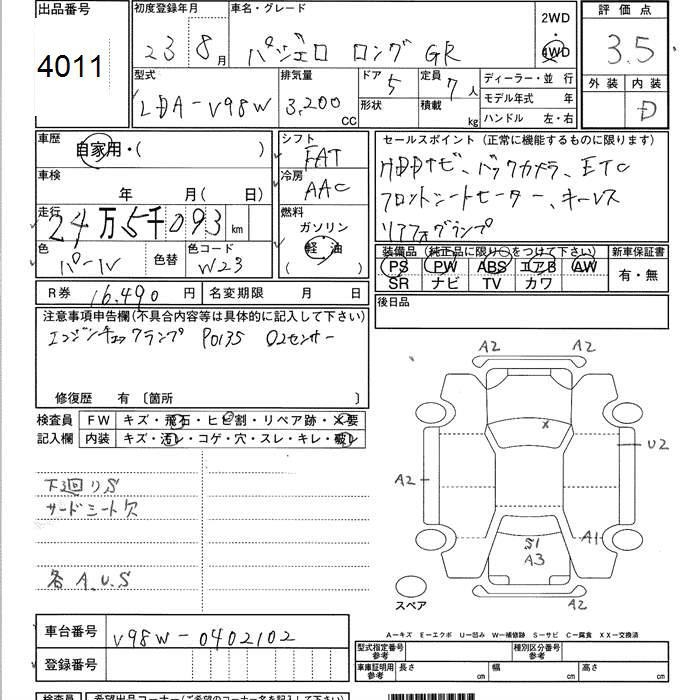 出品番号 初度登録年月 車名・グレード 評価点
4011 23 8月 パジェロ ロング GR 2WD 4WD 3.5
型式 排気量 ドア 定員 ディーラー・並行 外装 内装
LDA-V98W 3,200cc 5 7人 モデル年式 年 D
形状 積載 kg ハンドル 左・右
車歴 シフト セールスポイント(正常に機能するものに限ります)
自家用・( ) FAT HDDナビ、バックカメラ、ETC
車検 冷房 フロントシートヒーター、キーレス
年 月( 日) AAC リアフォグランプ
走行 燃料 装備品(純正品に限り○をつけて下さい) 新車保証書
24万5千093km ガソリン PS PW ABS エアB AW 有・無
色 色替 色コード 軽油 SR ナビ TV カワ
パール W23 ( )
R券 16,490円 名変期限 月 日 後日品
注意事項申告欄(不具合内容等は具体的に記入して下さい)
エンジンチェックランプ P0135 O2センサー
修復歴 有 〔箇所 〕
検査員 FW キズ・飛石・ヒビ割・リペア跡・✕要
記入欄 内装 キズ・汚レ・コゲ・穴・スレ・キレ・破レ
A2 A2
X
U2
A2
下廻りS
サードシート欠
S1 A1
A3
各A.U.S
A2
スペア
A-キズ E-エクボ U-凹み W-補修跡 S-サビ C-腐食 XX-交換済
車台番号 V98W-0402102
型式指定番号 参考 種別区分番号 参考
登録番号
車庫証明用 参考 長さ cm 幅 cm 高さ cm
検査員 希望出品コーナー(ご希望のコーナー名を記入して下さい)